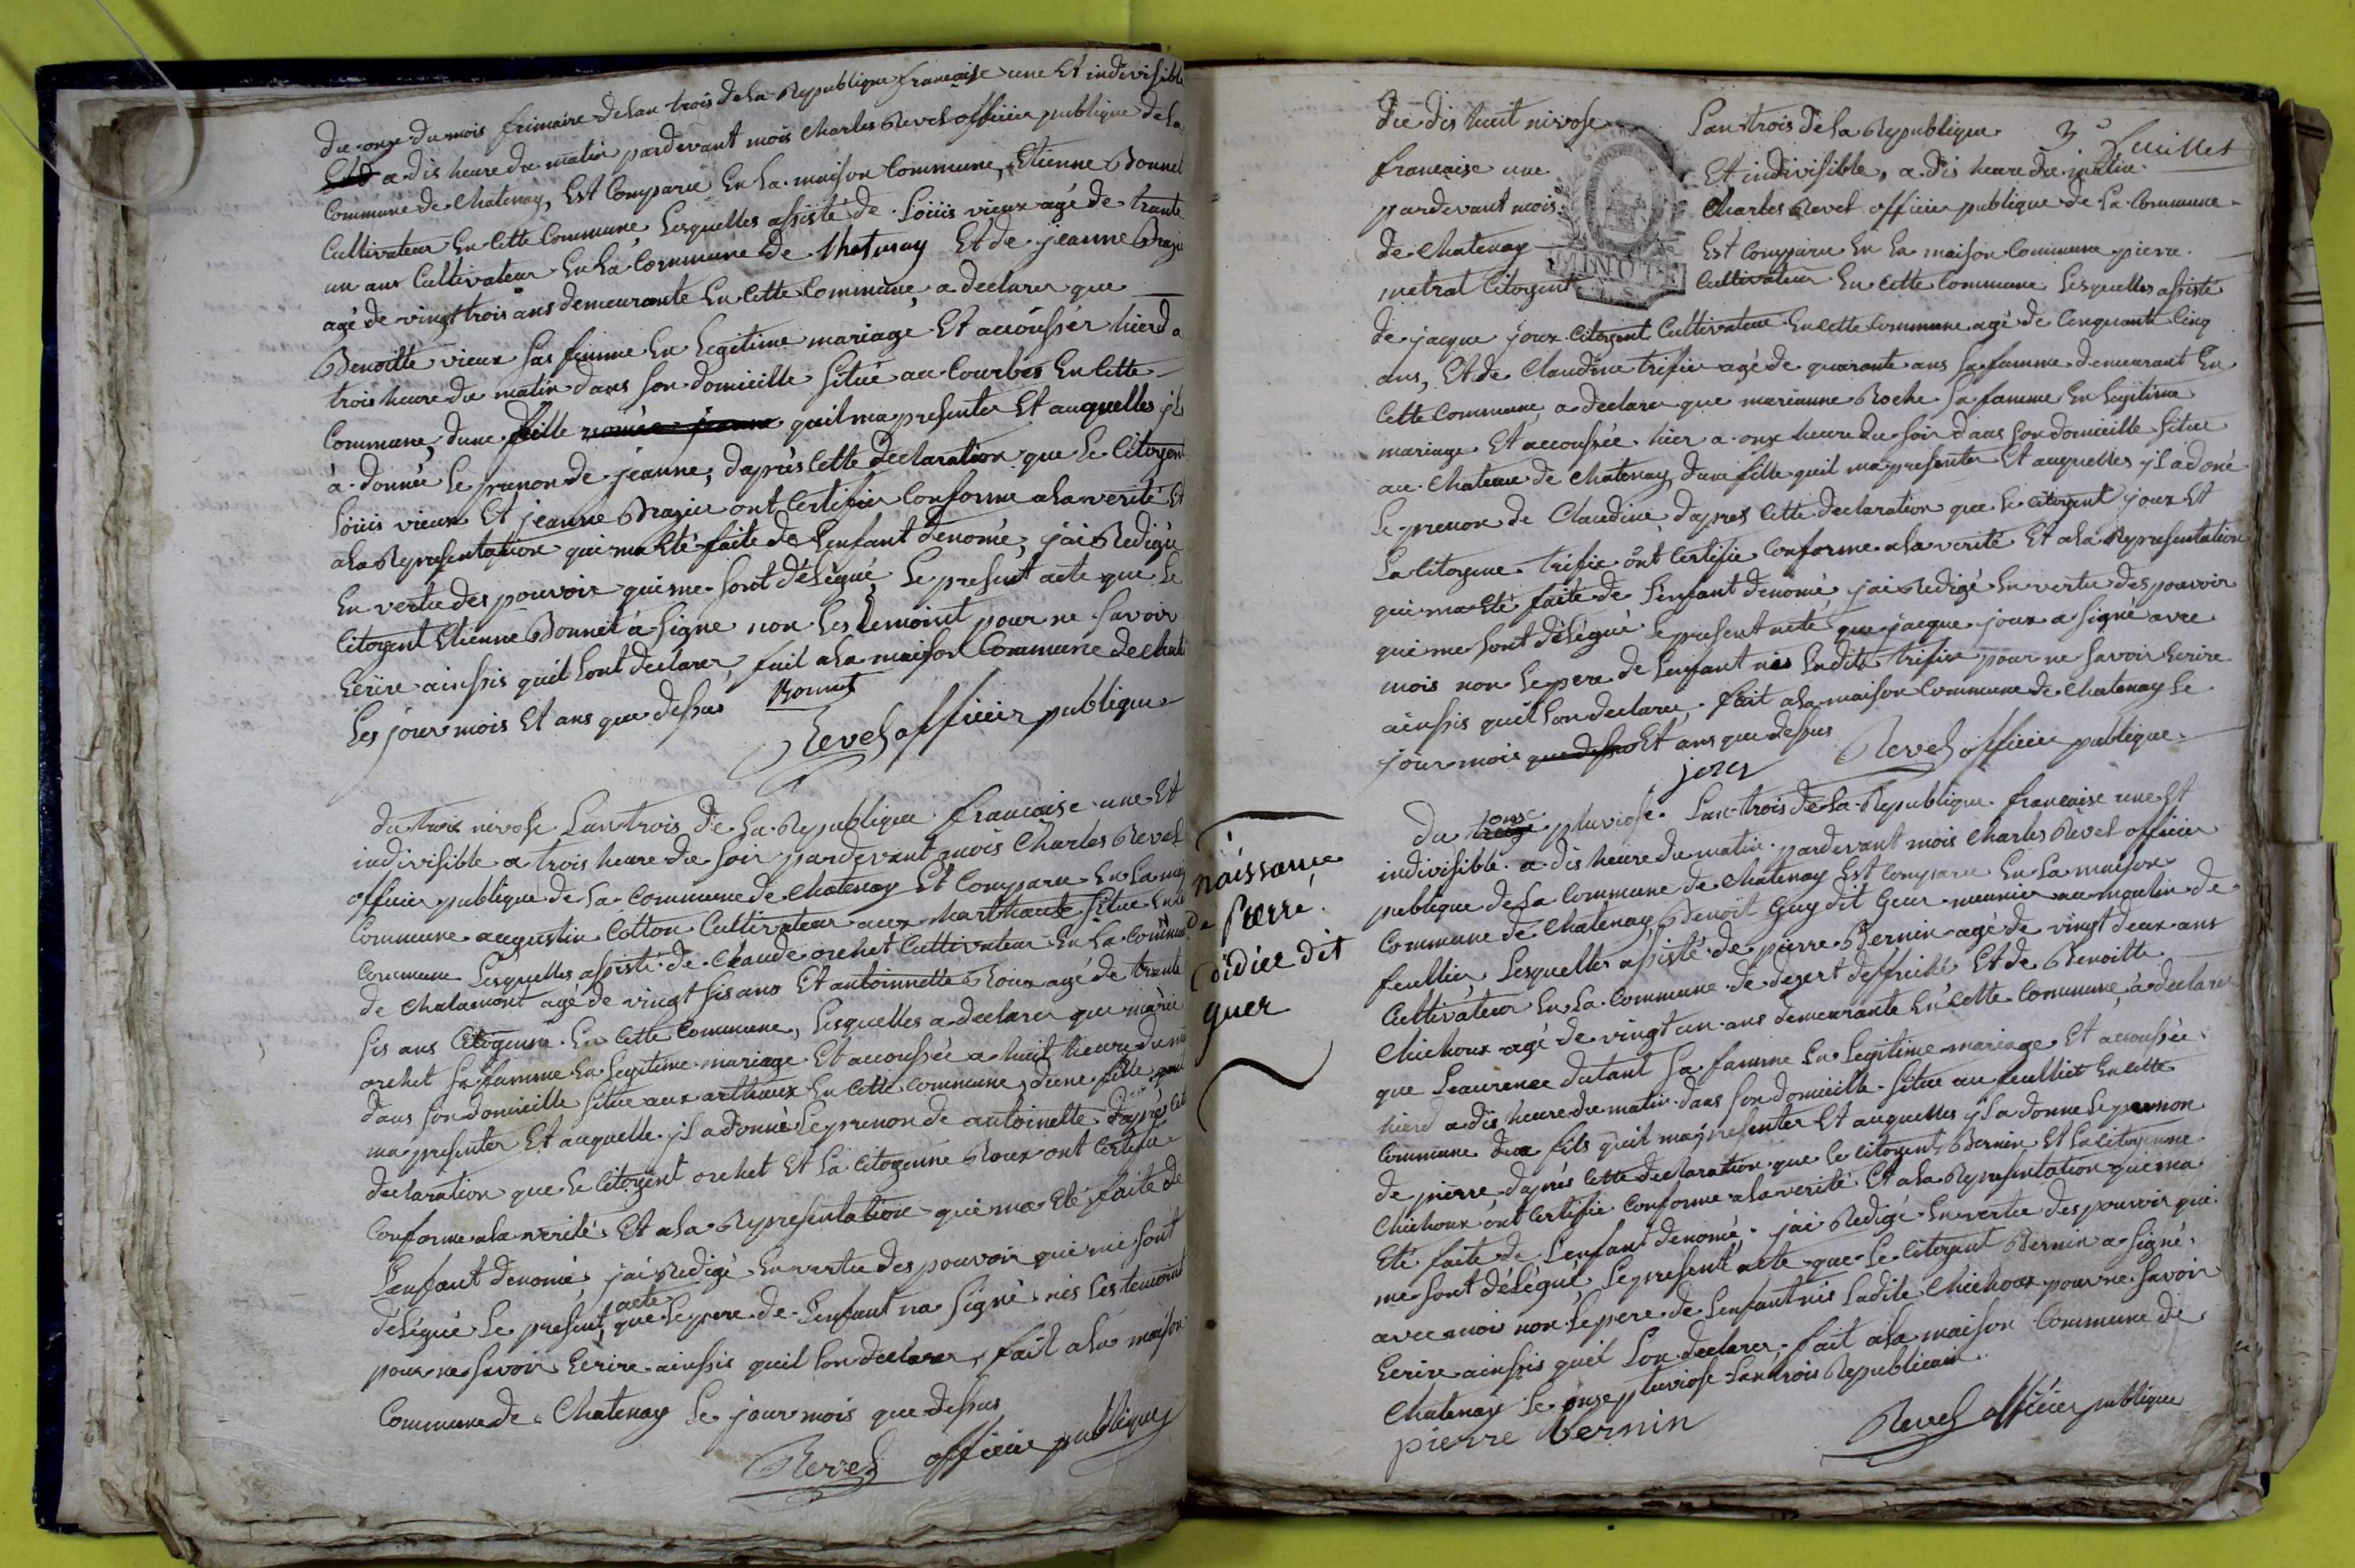 du onze du mois frimaire de lan trois de la Republique francaise une Et indivisible
a dis heure du matin pardevant mois charles Revel officier publique de la
Commune de chatenay, Est Comparu En la maison Commune, Etienne Bonnet
Cultivateur En Cette Commune, Lesquelles assisté de Loüis vieux agé de trante
un ans Cultivateur En la Commune de Chatenay Et de jeanne Brazie
agé de vingt trois ans demeurante En Cette Commune, a declarer que
Benoitte vieux sas femme En Legitime mariage Et accoussér hierd a
trois heure du matin dans son domicille situé au Courbes En Cette
Commune, dune fille nomée jeanne quil ma presenter Et auquelles jl
à donnée Le prenon de jeanne, daprès Cette declaration que Le Citoyent
Loüis vieux Et jeanne Brazier ont Certifier Conforme a la verité Et
a la Representation qui ma Eté faite de Lenfant denomé, jai Redigé
En vertu des pouvoir qui me sont délégué, Le present acte que Le
Citoyent Etienne Bonnet a signe non Les temoint pour ne savoir
Ecrire ainssis quil Lont declarer, fait a la maison Commune de Chate
Les jour mois Et ans que dessus Bonnet
Revel officier publique
du trois nivose Lan trois de La Republique francaise une Et
indivisible a trois heure du soir pardevant mois Charles Revel
officier publique de La Commune de Chatenay Et Comparu En La mai
Commune augustin Cotton Cultivateur aux harthaux situe En Ce
Commune Lesquelles assisté de Claude orchet Cultivateur En La Commune
de Chalamont agé de vingt sis ans Et antoinnette Roux agé de trante
sis ans Citoyenne En Cette Commune, Lesquelles a declarer que marie
orchet sa famme En Legitime mariage Et accoussée a huit heure du ma
dans son domicille situe aux arthaux En Cette Commune, dune fille quil
ma presenter Et auquelle jl a donné Le prenon de antoinette daprés Cete
declaration que Le Citoyent orchet Et La Citoyenne Roux ont Certifié
Conforme a la verité Et a la Representation qui ma Eté faite de
Lenfant denomé, jai Redigé En vertu des pouvoir qui me sont
délégué Le present acte que Le pere de Lenfant na signé nis Les temoint
pour ne savoir Ecrire ainssis quil Lon declarer, fait a la maison
Commune de Chatenay Le jour mois que dessus
Revel officier publique
3e feuillet
du dis huit nivose Lan trois de la Republique
francaise une Et indivisible, a dis heure du matin
pardevant mois Charles Revel officier publique de La Commune
de Chatenay Est Comparu En La maison Commune pierre
metrat Citoyent Cultivateur En Cette Commune Lesquelles assisté
MINUTE
de jacque joux Citoyent Cultivateur En Cette Commune agé de Cinquante Cinq
ans, Et de Claudine trifie agé de quarante ans sa famme demeurant En
Cette Commune, a declarer que marianne Roche sa famme En Legitime
mariage Et accoussée hier a onze heure du soir dans son domicille situe
au Chateau de Chatenay, dune fille quil ma presenter Et auquelles jl a doné
Le prenon de Claudine, daprés Cette declaration que Le Citoyent joux Et
La Citoyene trifie ont Certifie Conforme a la verité Et a la Representation
qui ma Eté faite de Lenfant denomé jai Redigé En vertu des pouvoir
qui me sont délégué Le present acte que jacque joux a signé avec
mois non Le pere de Lenfant nis Ladite trifie pour ne savoir Ecrire
ainssis quil Lon declarer, fait a la maison Commune de Chatenay Le
jour mois que dessus Et ans que dessus
joux Revel officier publique
naissance
de Pierre
didier dit
guer
du treize onze pluviose Lan trois de La Republique francaise une Et
indivisible a dis heure du matin pardevant mois Charles Revel officier
publique de La Commune de Chatenay Est Comparu En La maison
Commune de Chatenay, Benoit Guy dit Geur meunier au moulin de
feullier, Lesquelles assisté de pierre Bernin agé de vingt deux ans
Cultivateur En La Commune de desert deffriché Et de Benoitte
Chichoux agé de vingt un ans demeurante En Cette Commune, à declarer
que Leaurence dutant sa famme En Legitime mariage Et accoussée
hierd a dis heure du matin dans son domicille situe au feulliet En Cette
Commune dun fils quil ma presenter Et auquelles jl a donne Le prenon
de pierre, daprés Cette declaration que Le Citoyent Bernin Et La Citoyenne
Chichoux ont Certifie Conforme a la verité Et a la Representation qui ma
Eté faite de Lenfant denomé, jai Redigé En vertu des pouvoir qui
me sont délégué, Le present acte que Le Citoyent Bernin a signé
avec moi non Le pere de Lenfant nis Ladite Chichoux pour ne savoir
Ecrire ainssis quil Lon declarer, fait a la maison Commune de
Chatenay Le onze pluviose Lan trois Republicain
pierre bernin Revel officier publique